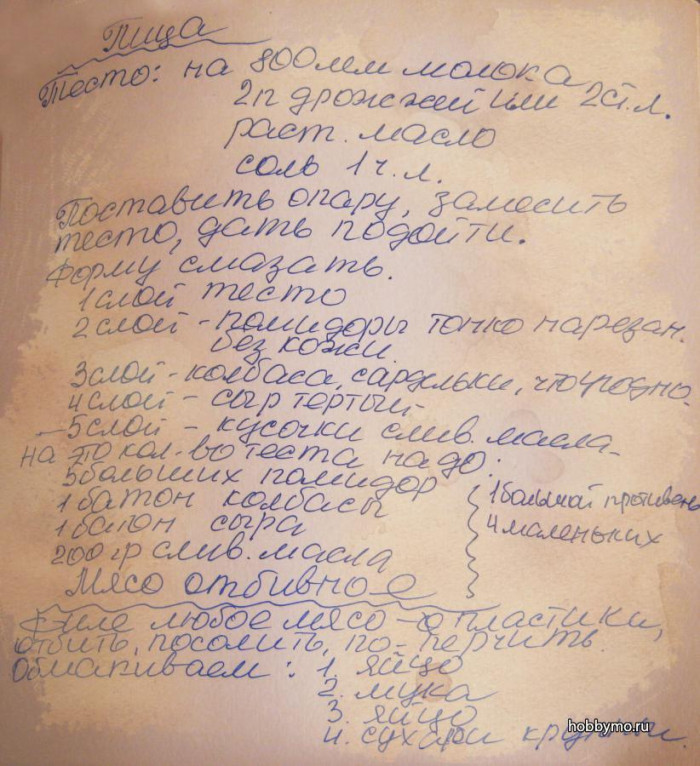 Пица
Тесто: на 800мл молока
2п дрожжей или 2ст.л.
раст. масло
соль 1 ч.л.
Поставить опару, замесить
тесто, дать подойти.
Форму смазать.
1 слой тесто
2 слой - помидоры тонко нарезан.
без кожи.
3 слой - колбаса, сардельки, что угодно.
4 слой - сыр тертый
5 слой - кусочки слив. масла
на то кол-во теста надо:
5 больших помидор
1 батон колбасы
1 батон сыра
200 гр слив. масла
1 большой противень
4 маленьких
Мясо отбивное
Филе любое мясо - пластики,
отбить, посолить, по-перчить.
Обмакиваем: 1. яйцо
2. мука
3. яйцо
4. сухари
hobbymo.ru